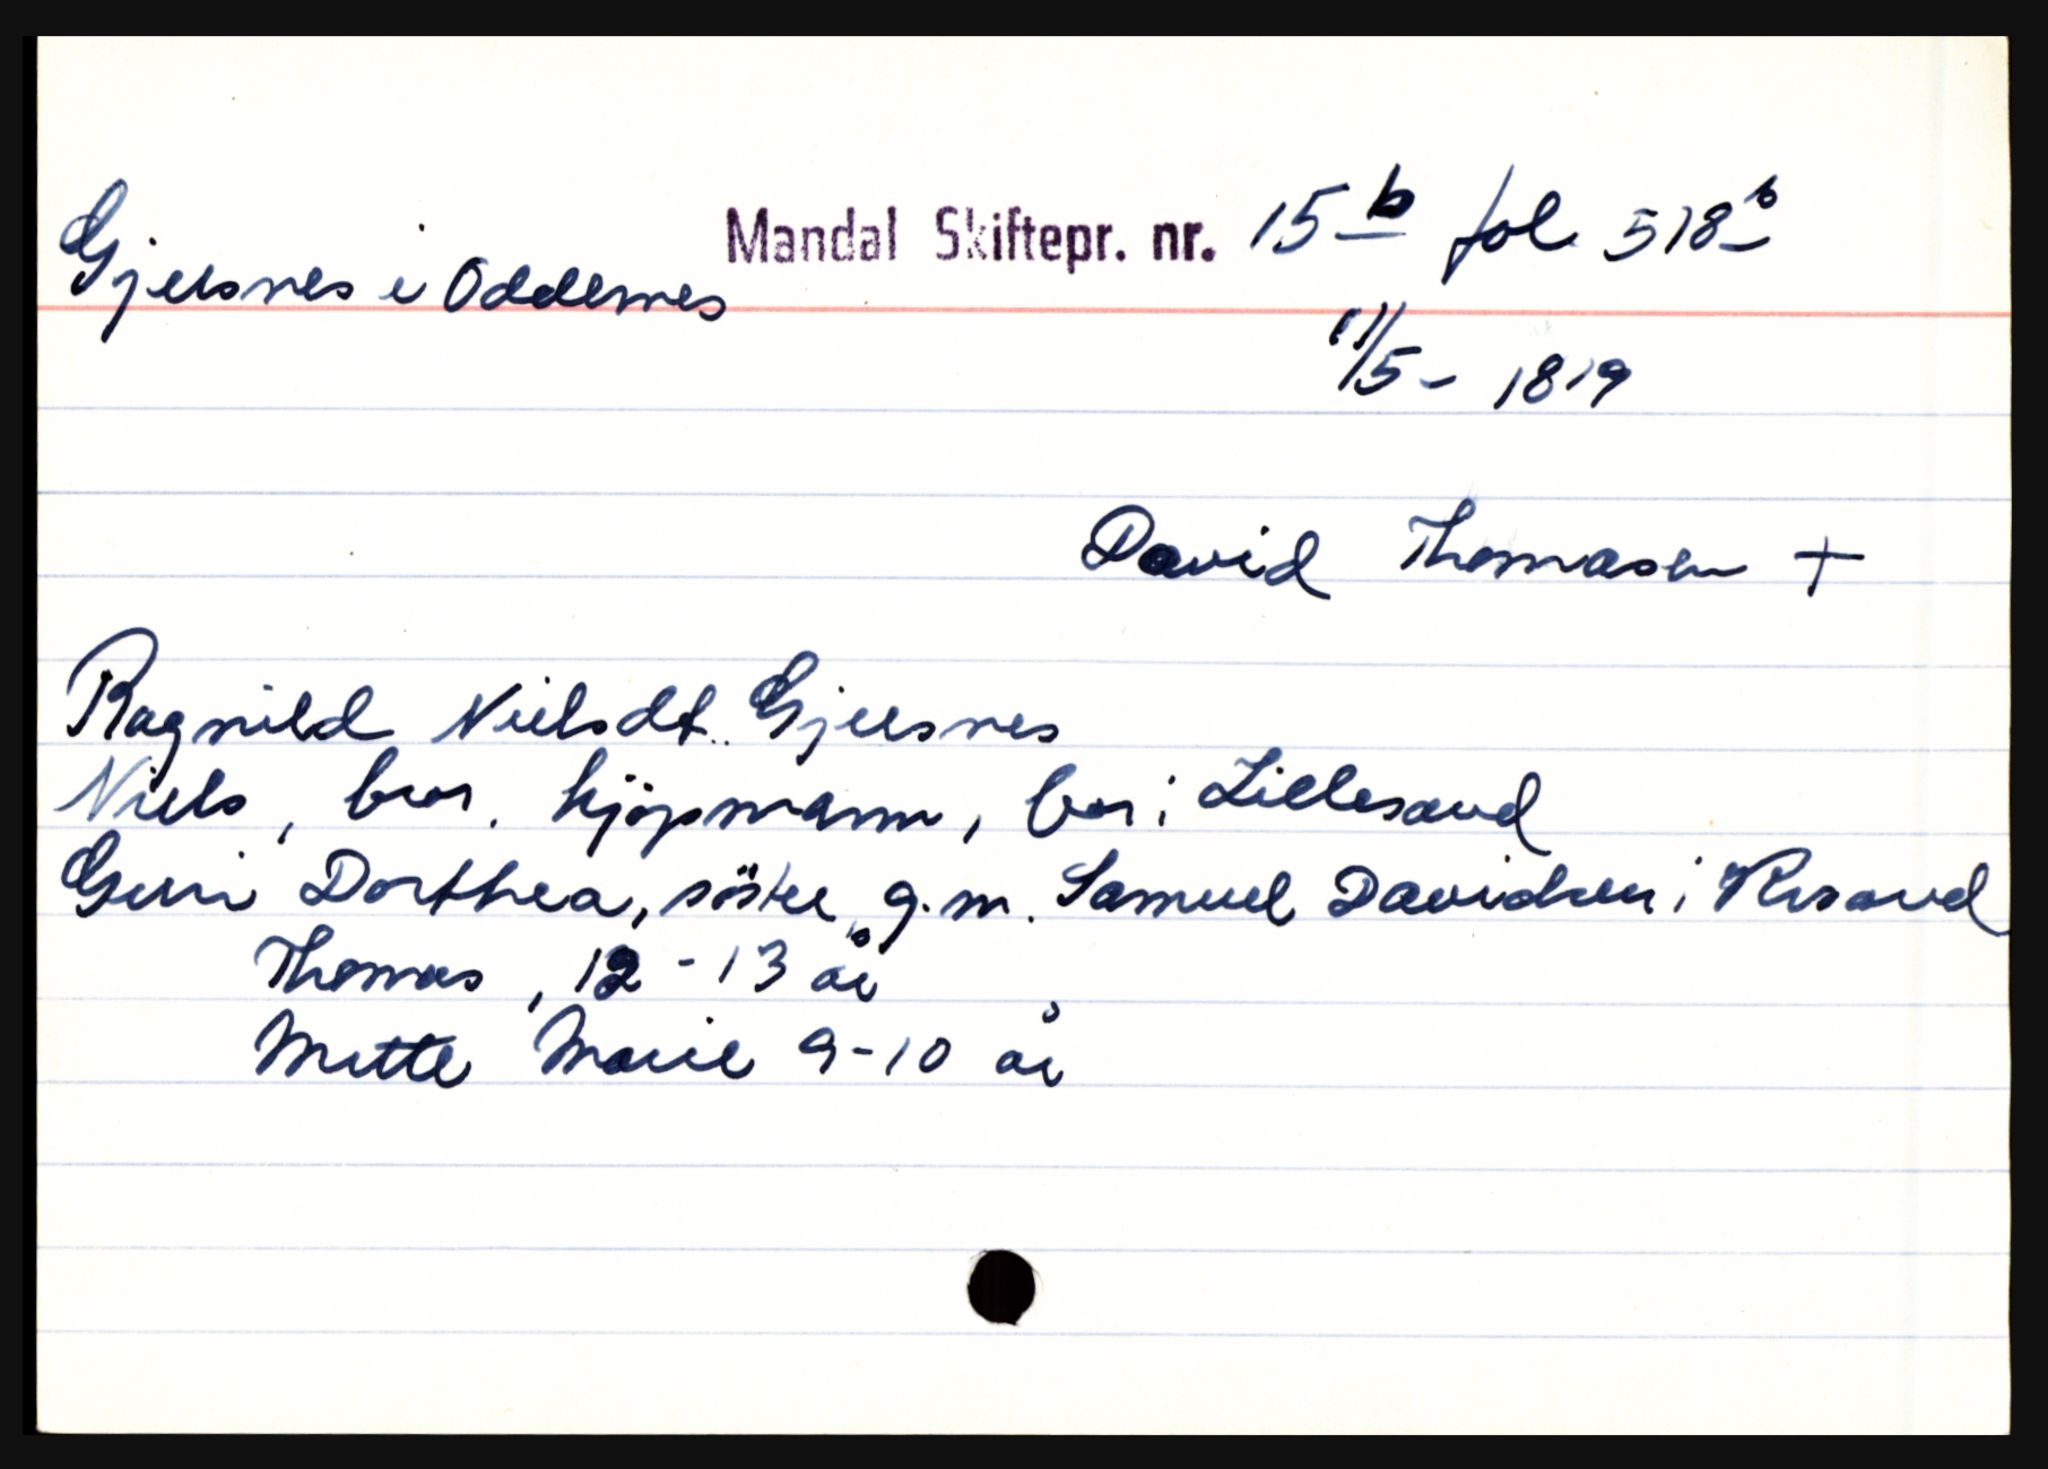 Mandal Skiftepr. nr. 15b fol 518b
Gjersnes i Oddernes
11/5 - 1819
David Thomasen +
Ragnild Nielsdt. Gjersnes
Niels, bror, kjöpmann, bor i Lillesand
Guri Dorthea, söster, g.m. Samuel Davidsen i Risand
Thomas, 12-13 år
Mette Marie 9-10 år